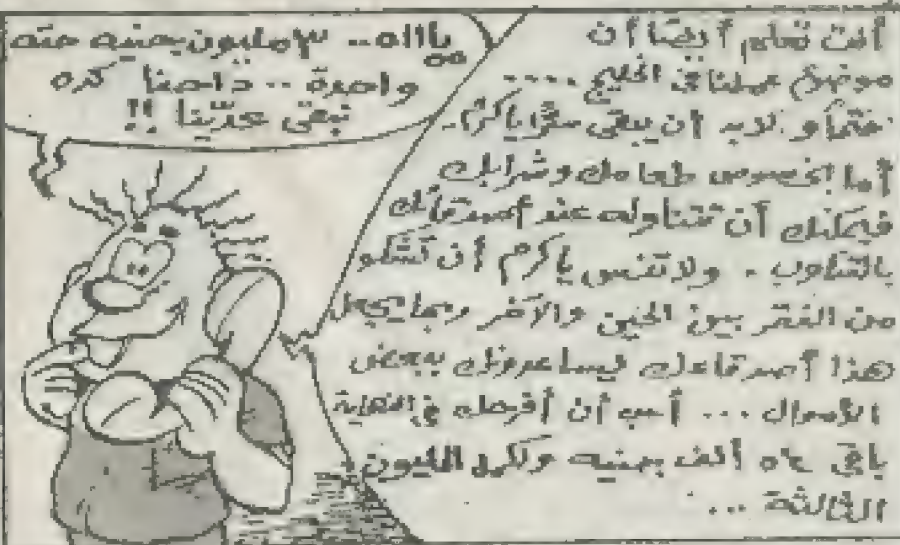 أنت تعلم أيضا أن
موضوع عملنا في الخليج ....
حتما و لابد أن يبقى سرا يا كرم.
أما بخصوص طعامك وشرابك
فيمكنك أن تتناوله عند أصدقائك
بالتناوب . ولا تنس يا كرم أن تشكو
من الفقر بين الحين والآخر ربما يجعل
هذا أصدقاءك يساعدونك ببعض
الأموال ... أحب أن أفرحك في النهاية
باقي ألف جنيه ونكمل المليون
الثالثة ...
ياااه .. ٣ مليون جنيه حته
واحدة .. داحنا كده
نبقى عدينا !!